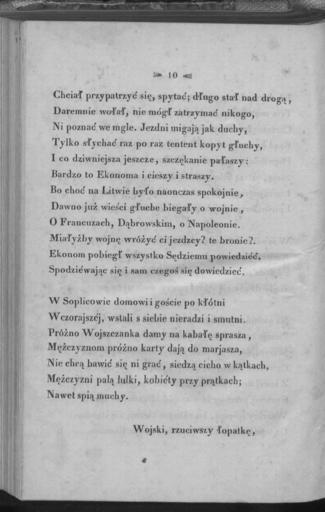 10
Chciał przypatrzyć się, spytać; długo stał nad drogą,
Daremnie wołał, nie mógł zatrzymać nikogo,
Ni poznać we mgle. Jezdni migają jak duchy,
Tylko słychać raz po raz tentent kopyt głuchy,
I co dziwniejsza jeszcze, szczękanie pałaszy:
Bardzo to Ekonoma i cieszy i straszy.
Bo choć na Litwie było naonczas spokojnie,
Dawno już wieści głuche biegały o wojnie,
O Francuzach, Dąbrowskim, o Napoleonie.
Miałyżby wojnę wróżyć ci jezdzcy? te bronie?.
Ekonom pobiegł wszystko Sędziemu powiedziéć,
Spodziéwając się i sam czegoś się dowiedziéć.
W Soplicowie domowi i goście po kłótni
Wczorajszéj, wstali s siebie nieradzi i smutni.
Próżno Wojszczanka damy na kabałę sprasza,
Mężczyznom próżno karty dają do marjasza,
Nie chcą bawić się ni grać, siedzą cicho w kątkach,
Mężczyzni palą lulki, kobiéty przy prątkach;
Nawet spią muchy.
Wojski, rzuciwszy łopatkę,